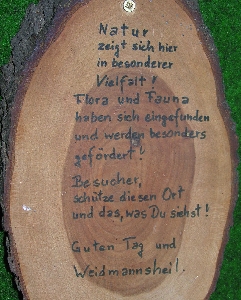 Natur
zeigt sich hier
in besonderer
Vielfalt!
Flora und Fauna
haben sich eingefunden
und werden besonders
gefördert!
Besucher,
schütze diesen Ort
und das, was Du siehst!
Guten Tag und
Weidmannsheil.